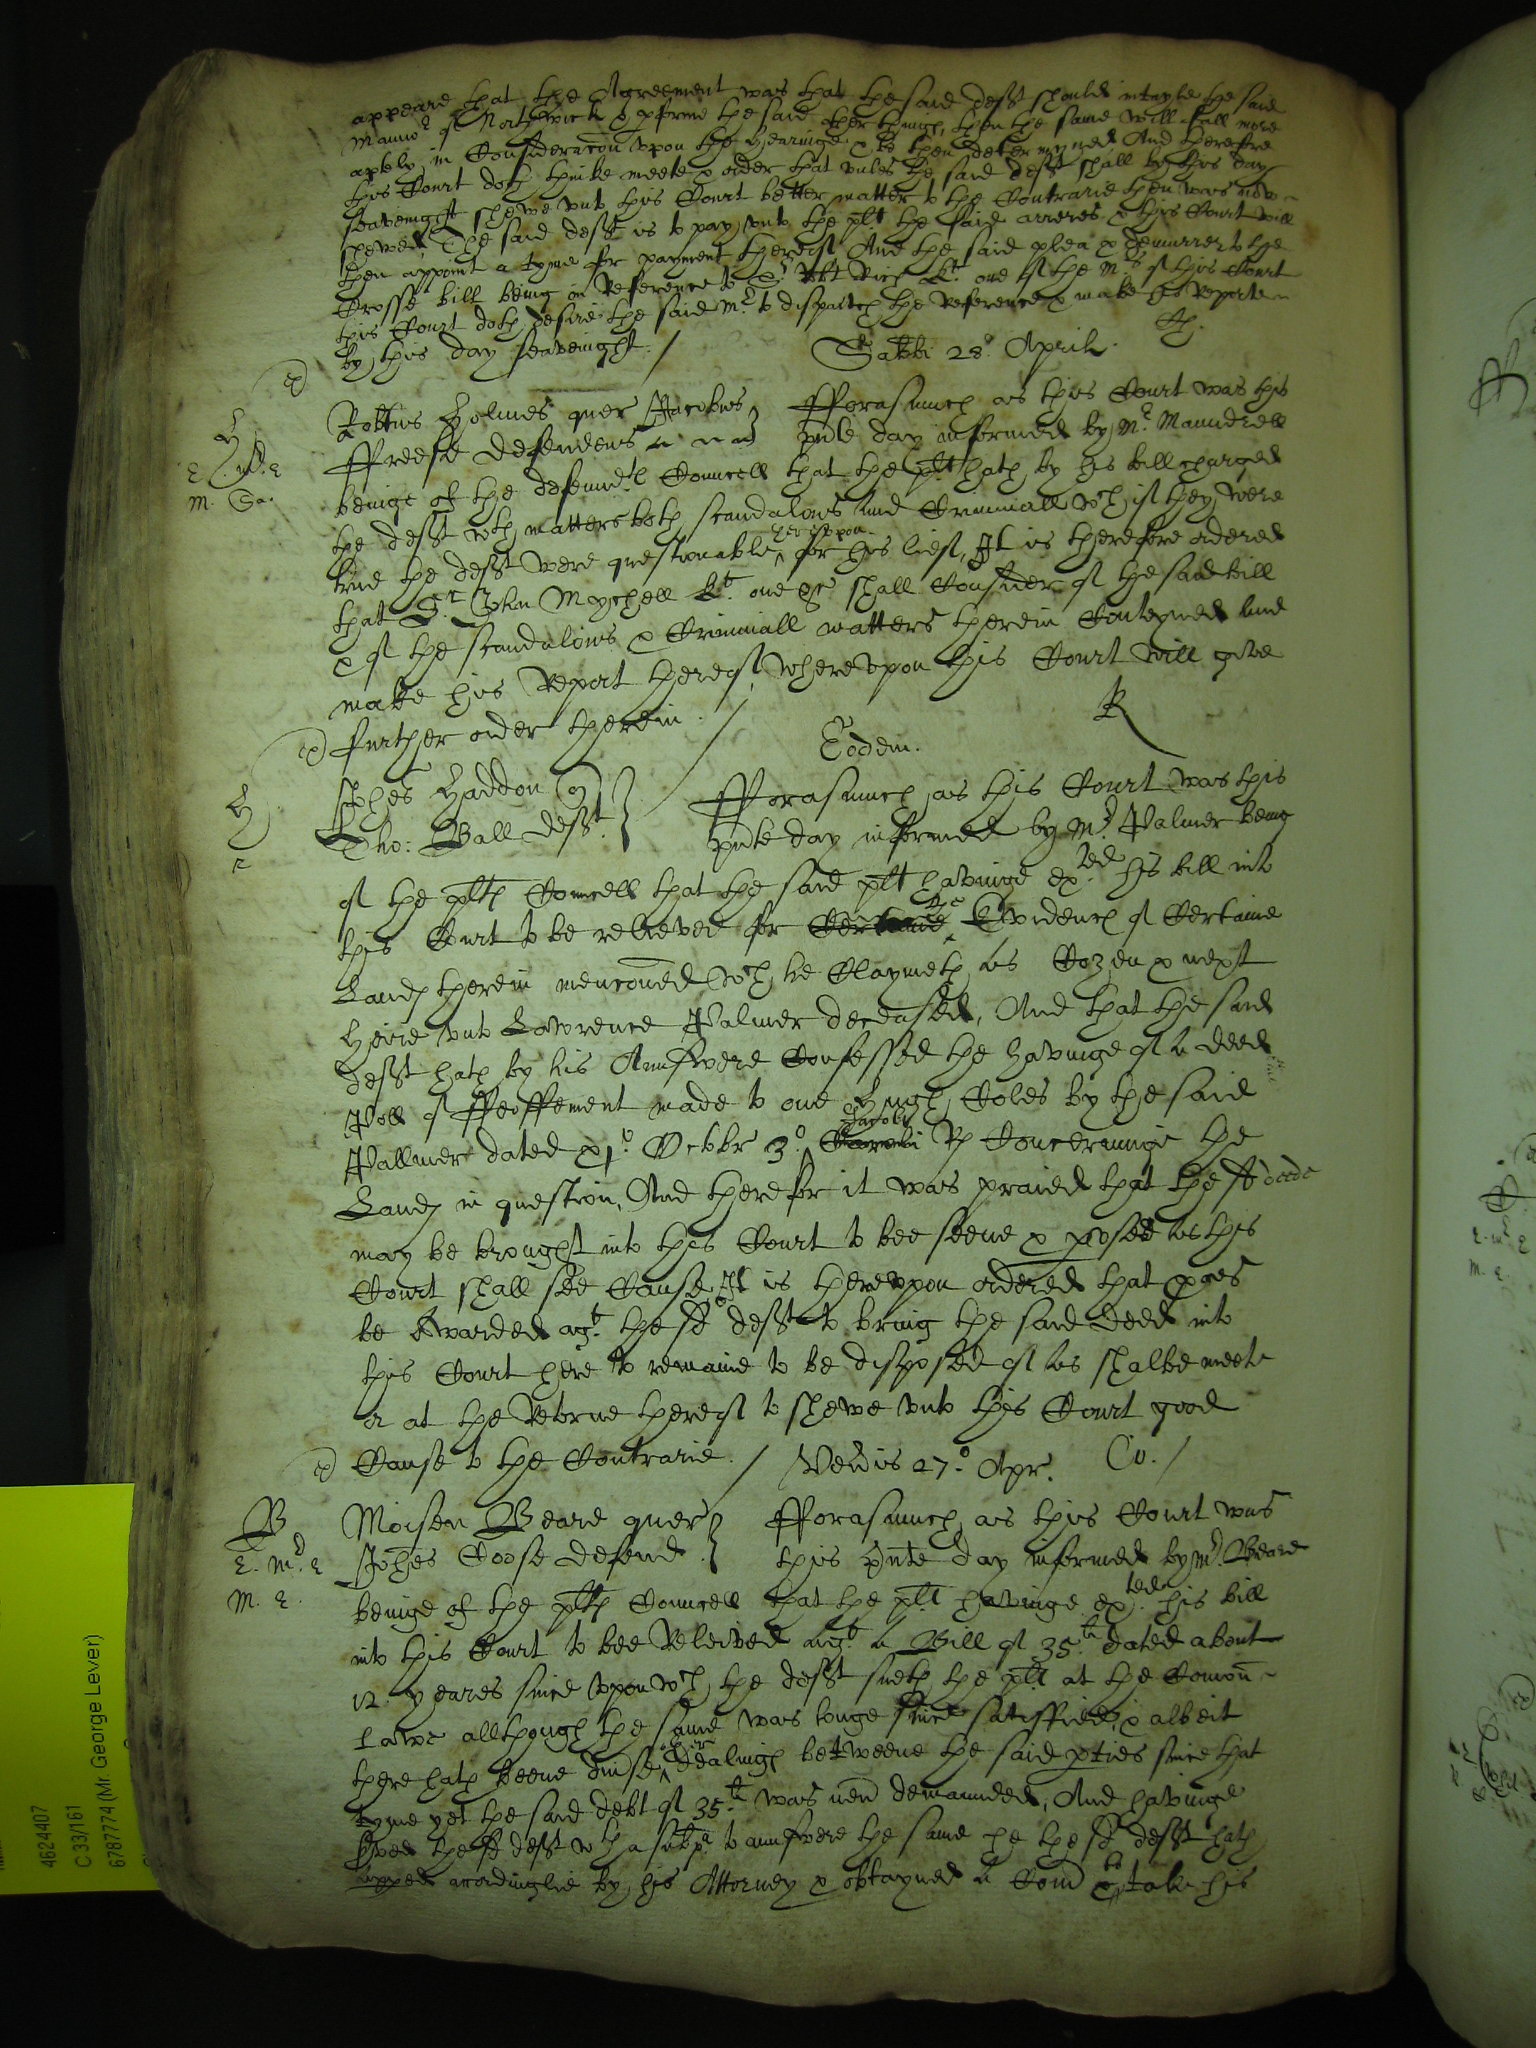 appeare that the Agreement was that the said deft should intayle the said
Mannor of Northwick & pforme the said other things, then the same will fall more
aptly in Consideracon vpon the hearinge & be then determyned And therefore
this Court doth thinke meete & order that vnles the said deft shall by this day
seavenight shewe vnto this Court better matter to the Contrarie then was now
shewed, The said deft is to pay vnto the plt the said arreres, & this Court will
then appoint a tyme for payment thereof And the said plea & demurrer to the
Crosse bill being in Reference to Sr Robt Rich Kt one of the Mrs of this Court
this Court doth desire the said Mr to dispatch the Reference & make his Reporte
by this day seavenight. /
Sabbi 28o April.
Robtus Holmes quer Jacobus
Freese defendens
Forasmuch as this Court was this
pnte day informed by Mr Maundrell
beinge of the defendts Councell that the plt hath by his bill charged
the deft wth matters both scandalous and Criminall wch if they were
true the deft were questionable thervpon for his life, It is therefore ordered
that Sr John Maychell Kt one &c shall Consider of the said bill
& of the scandalous & Criminall matters therein Conteyned and
make his Report thereof, wherevpon this Court will give
further order therein. /
R
Eodem.
Johes Haddon q
Tho: Ball deft
Forasmuch as this Court was this
pnte day informed by Mr Palmer being
of the plts Councell that the said plt havinge exted his bill into
this Court to be relieved for the Evidence of Certaine
Lands therein mencioned wch he Claymeth as Cozen & next
heire vnto Lawrence Palmer deceased, And that the said
deft hath by his Answere Confessed the havinge of a deed
Poll of Feoffement made to one Hugh Coles by the said
Pallmer dated xjo Octobr 3o Jacobi Rs Concerninge the
Lands in question, And therefor it was praied that the sd deede
may be brought into this Court to bee seene & pused as this
Court shall see Cause, It is therevpon ordered that pces
be Awarded agt the sd deft to bring the said deed into
this Court here to remaine to be disposed of as shalbe meete
or at the Retorne thereof to shewe vnto this Court good
Cause to the Contrarie. / Venis 27o Apr. Co. /
Moisen Beare quer
Johes Coose defend
Forasmuch as this Court was
this pnte day informed by Mr Beare
beinge of the plts Councell that the plt havinge exted his bill
into this Court to bee Releived agt a Bill of 35li dated about
12 yeares since vpon wch the deft sueth the plt at the Comon
Lawe allthough the same was longe since satisfied, & albeit
there hath beene divse other dealings betweene the said pties since that
tyme yet the said debt of 35li was nev demaunded, And havinge
sved the sd deft wth a subpa to answere the same he the sd deft hath
apped accordinglie by his Attorney & obtayned a Com to take his
4624407
C 33/161
6787774 (Mr. George Lever)